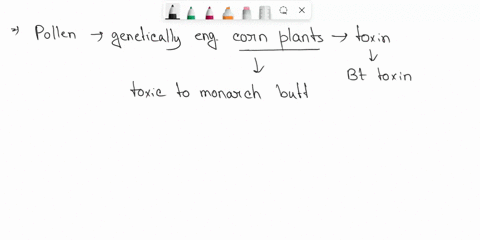 *) Pollen → genetically eng. corn plants → toxin
↓ ↓
Bt toxin
toxic to monarch butt